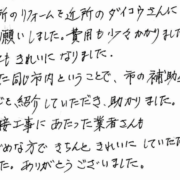 所のリフォームを近所のダイコウさんに
願いしました。費用も少々かかりました
もきれいになりました。
た同じ市内ということで、市の補助
ビを紹介していただき、助かりました。
接工事にあたった業者さんも
じめな方できちんときれいにしていた
た。ありがとうございました。